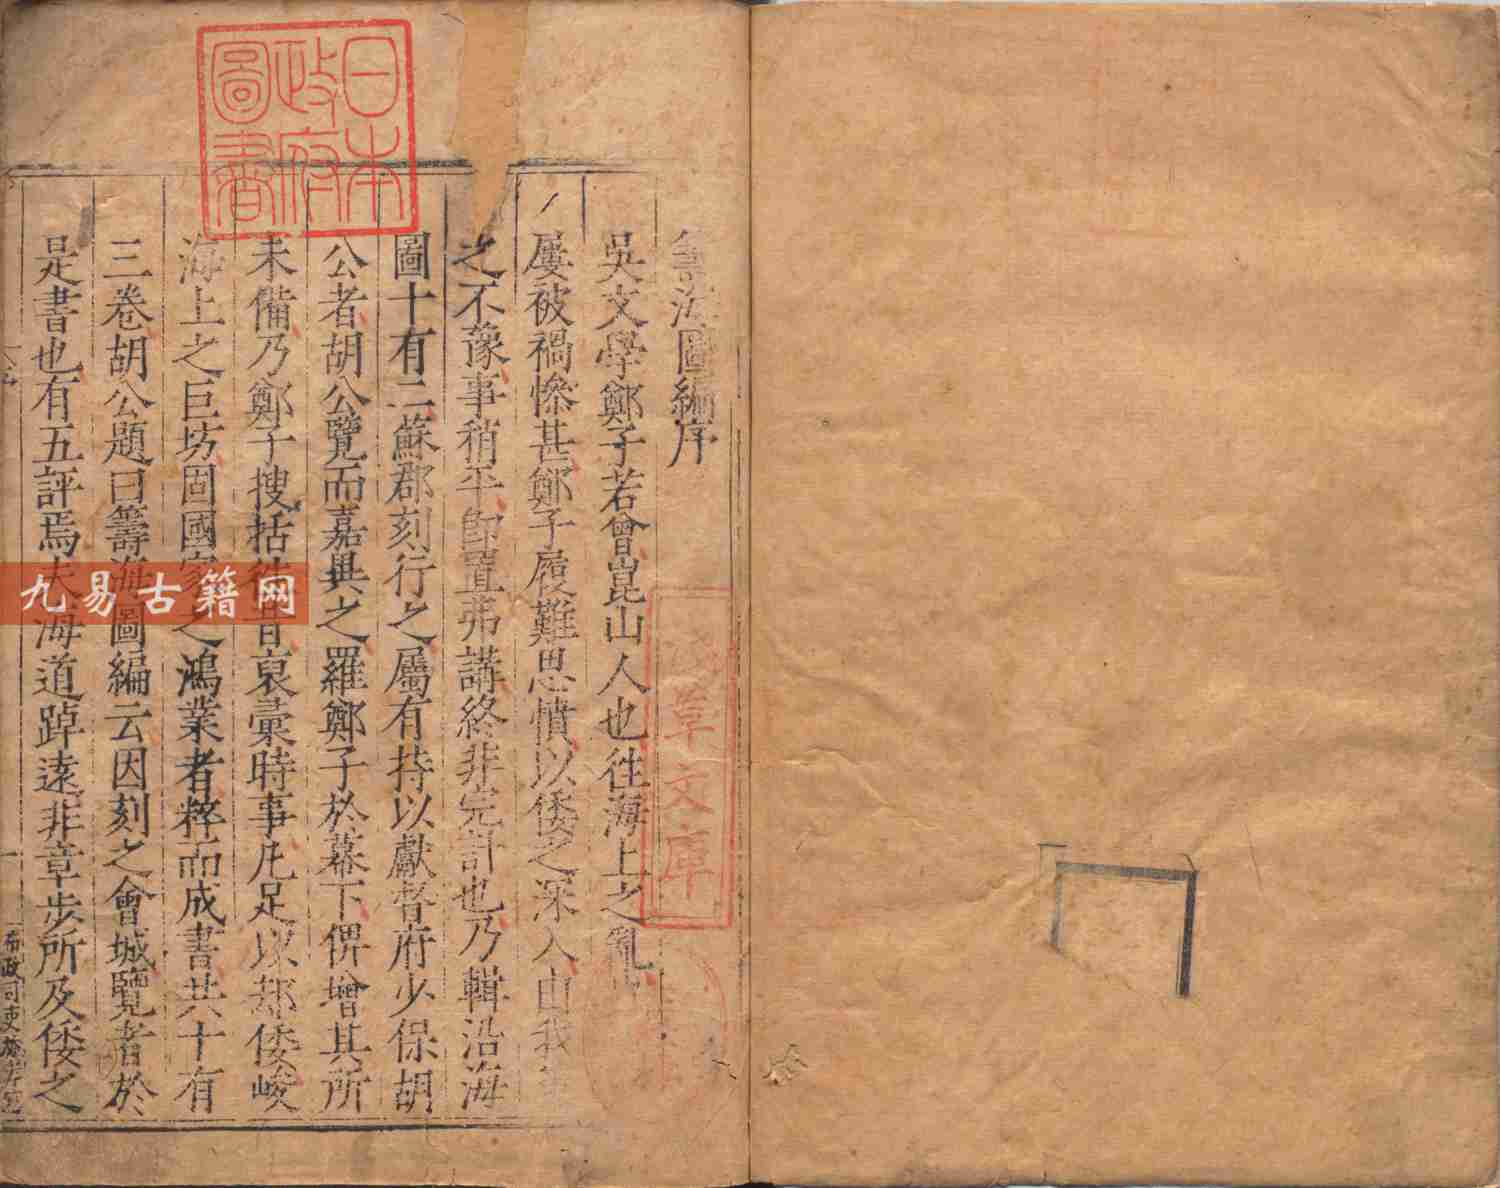 籌海圖編序
吳文學鄭子若曾崑山人也往海上之亂
屢被禍慘甚鄭子履難思憤以倭之深入由我
之不豫事稍平卽置弗講終非完計也乃輯沿海
圖十有二蘇郡刻行之屬有持以獻督府少保胡
公者胡公覽而嘉異之羅鄭子於幕下俾增其所
未備乃鄭子搜括往昔裒彙時事凡足以却倭峻
海上之巨坊固國家之鴻業者粹而成書共十有
三卷胡公題曰籌海圖編云因刻之會城覽者於
是書也有五評焉夫海道踔遠非章步所及倭之
日本
政府
圖書
草文庫
九易古籍网